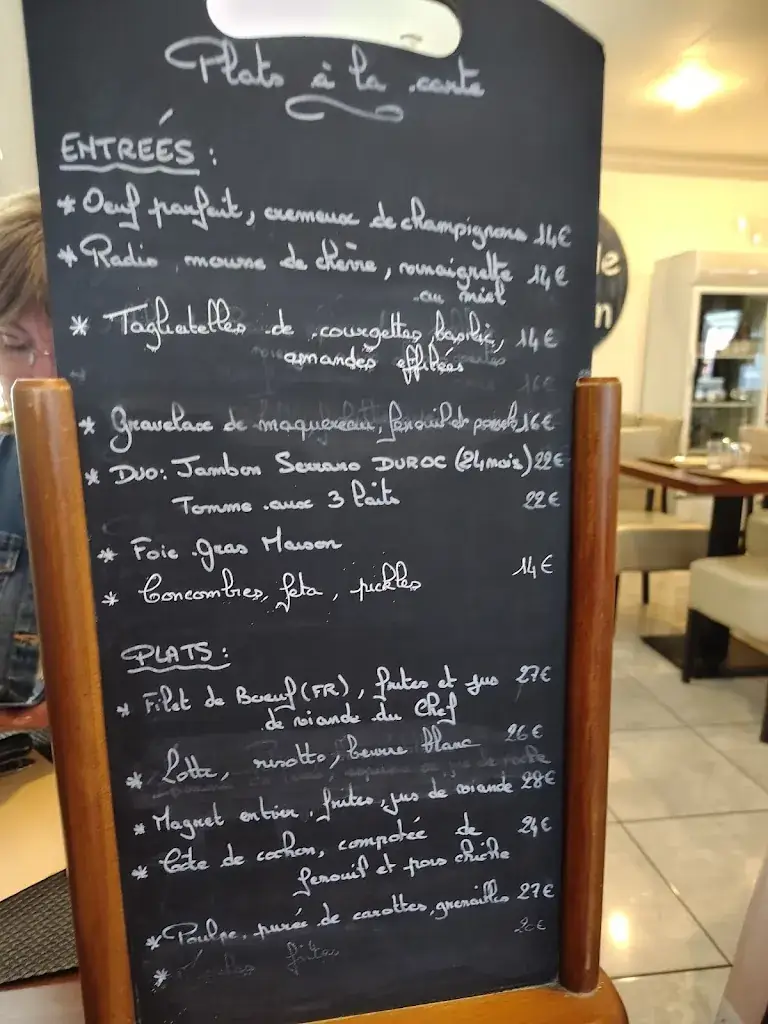 Plats à la carte
ENTREÉS :
* Oeuf parfait, cremeux de champignons 14€
* Radis, mousse de chèvre, vinaigrette 14€
au miel
* Tagliatelles de courgettes, basilic, 14€
amandes effilées
16€
* Gravelax de maquereau, fenouil et 16€
* DUO: Jambon Serrano DUROC (24 mois) 22€
Tomme aux 3 laits 22€
* Foie Gras Maison
* Concombres, feta, pickles 14€
PLATS :
* Filet de Boeuf (FR), frites et jus 27€
de viande du Chef
* Lotte, risotto, beurre blanc 26€
* Magret entier, frites, jus de viande 28€
* Côte de cochon, compotée de 24€
fenouil et pois chiche
* Poulpe, purée de carottes, grenailles 27€
* frites 20€
le
n